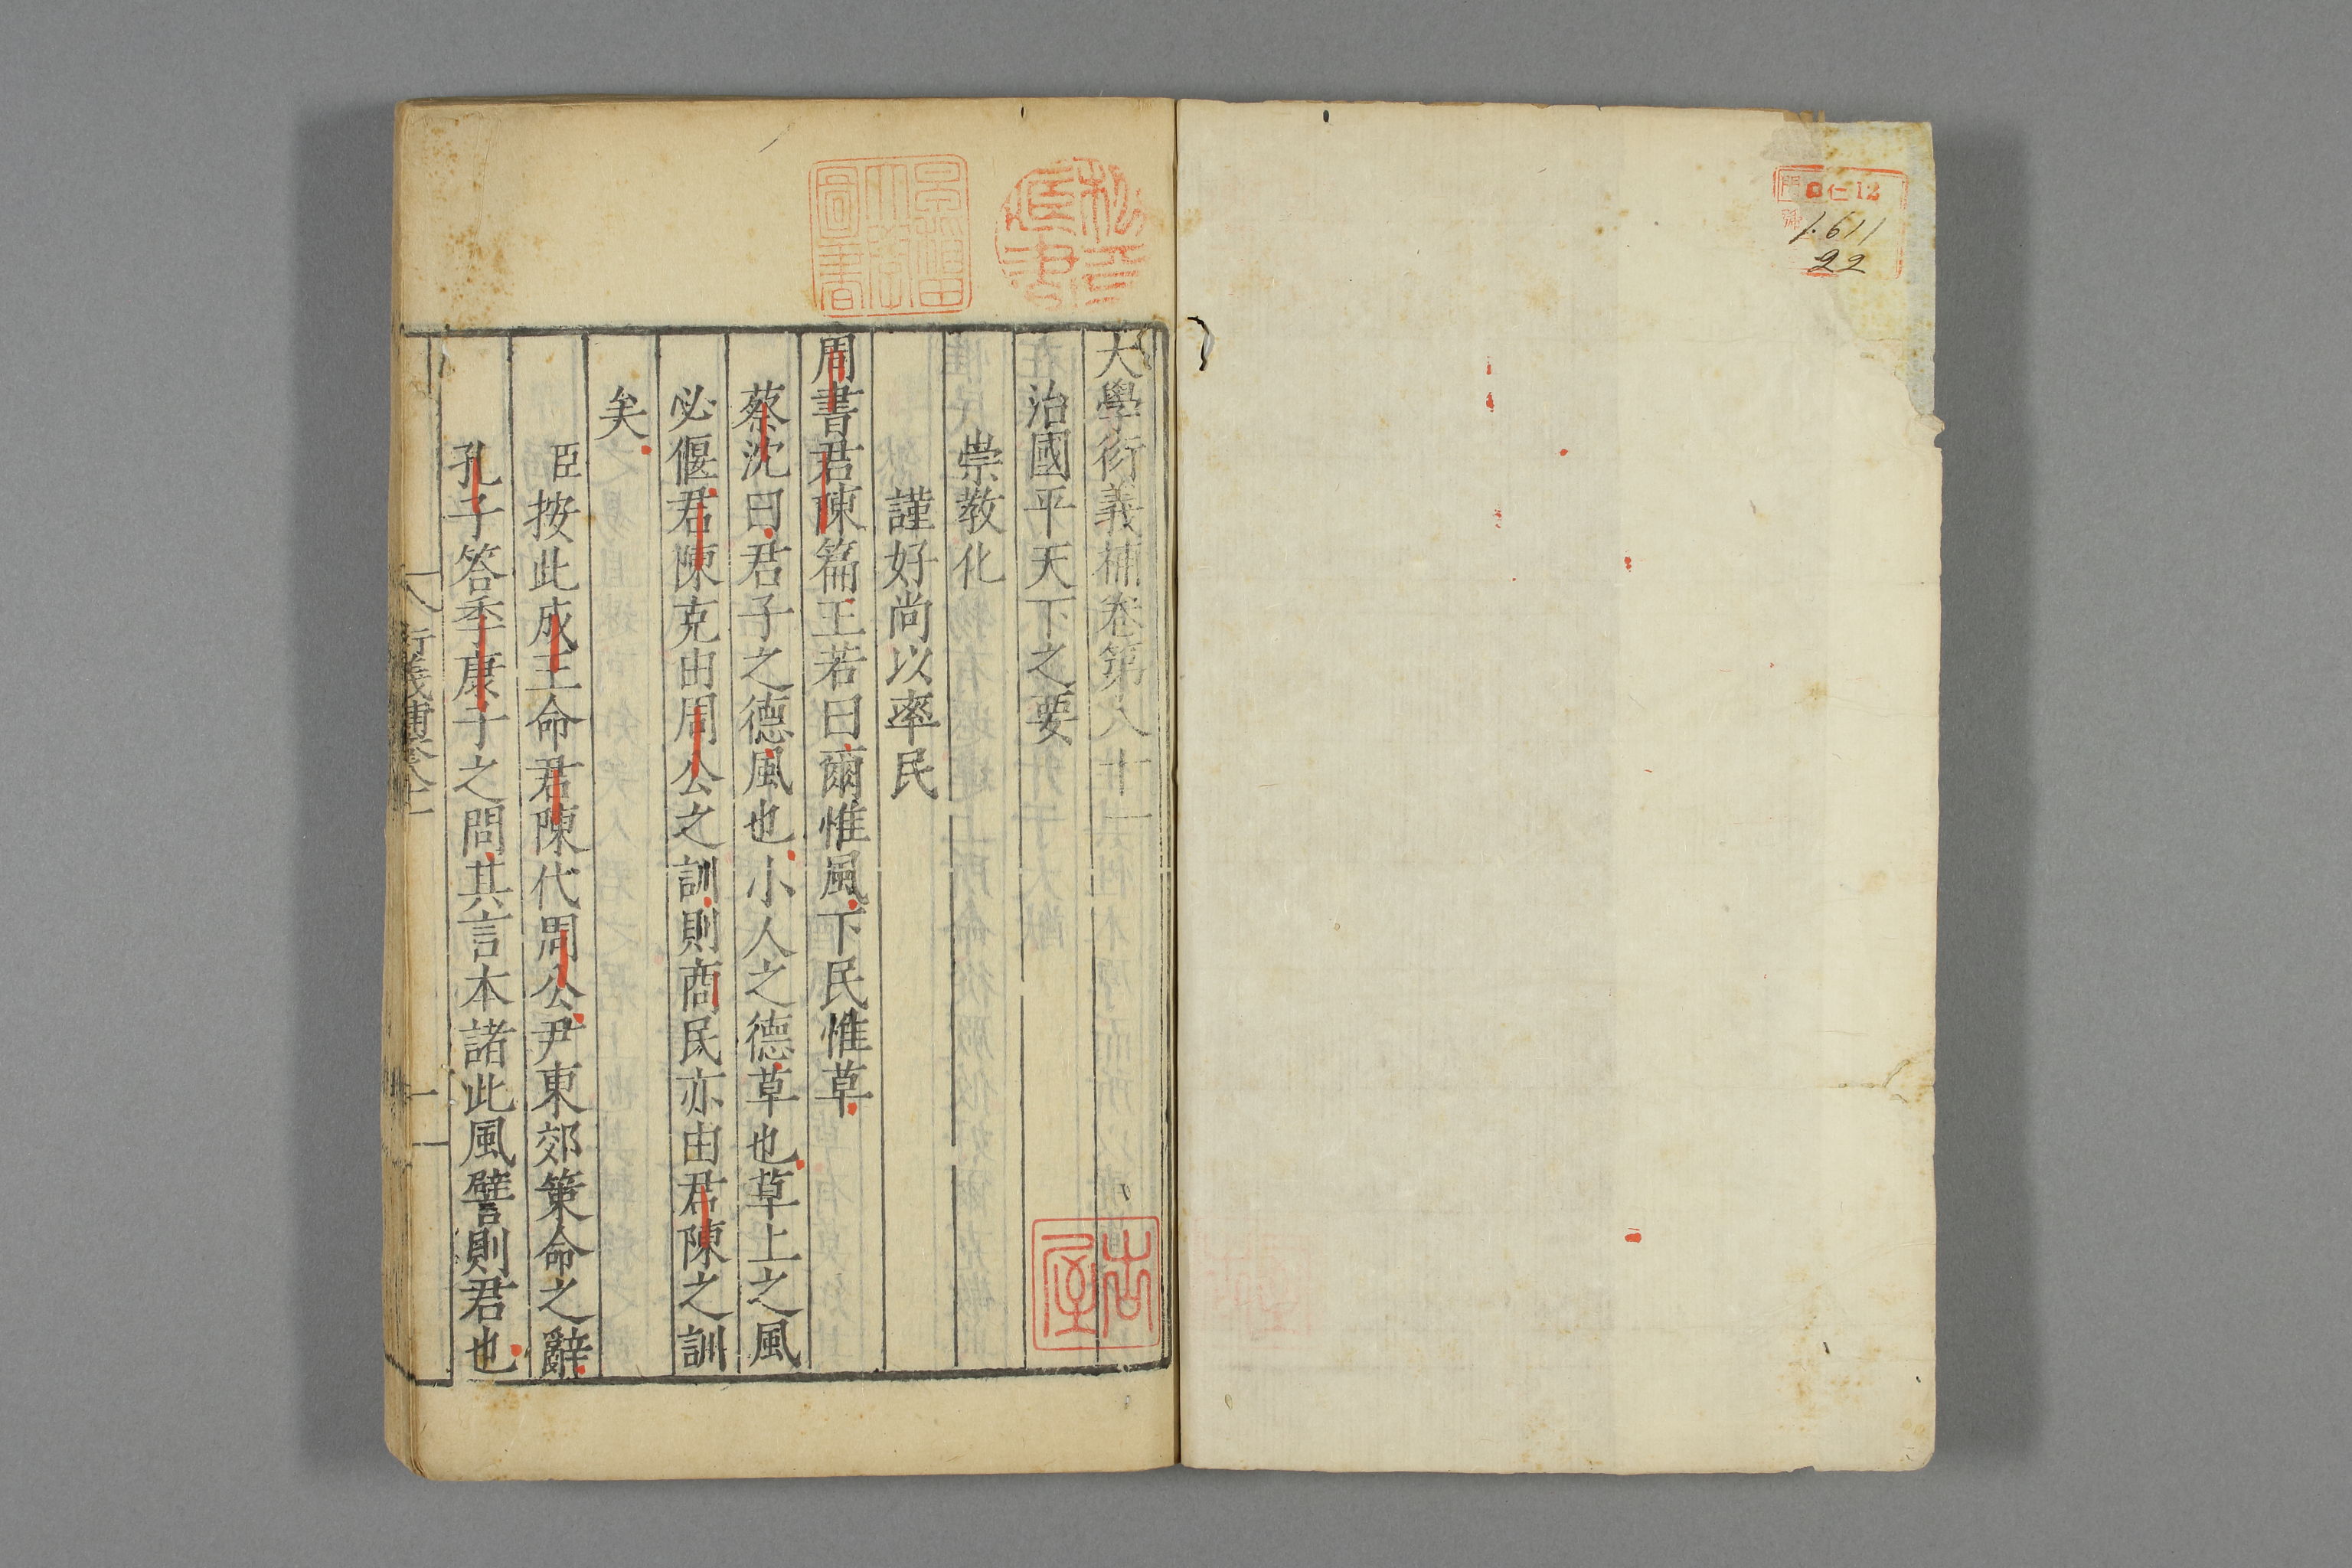 大學衍義補卷第八十一
治國平天下之要
崇教化
謹好尚以率民
周書君陳篇王若曰爾惟風下民惟草
蔡沈曰君子之德風也小人之德草也草上之風
必偃君陳克由周公之訓則商民亦由君陳之訓
矣
臣按此成王命君陳代周公尹東郊策命之辭
孔子答季康子之問其言本諸此風譬則君也
12
1.611
22